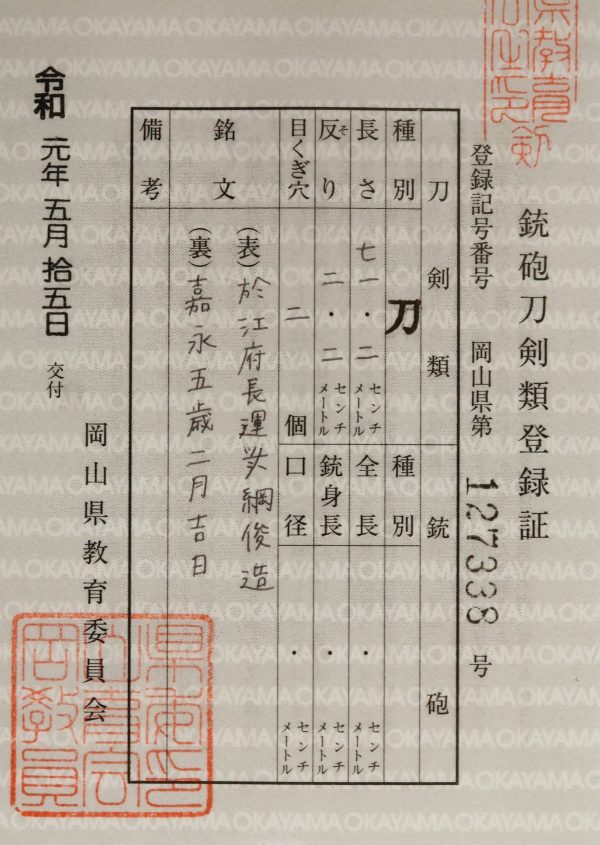 銃砲刀剣類登録証
登録記号番号 岡山県第 127338 号
刀剣類 銃砲
種別 刀 種別
長さ 七一・二 センチメートル 全長 ・ センチメートル
反り そ 二・二 センチメートル 銃身長 ・ センチメートル
目くぎ穴 二 個 口径 ・ センチメートル
銘文 (表)於江府長運斎綱俊造
(裏)嘉永五歳二月吉日
備考
岡山県教育委員会
令和 元年 五月 拾五日 交付
OKAYAMA